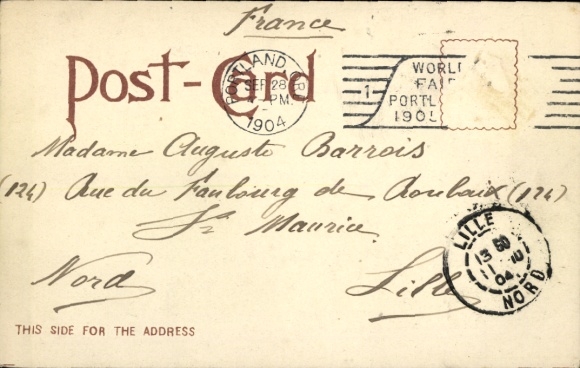 France
Post-Card
PORTLAND, OR
SEP 28
PM.
1904
1
WORL
FAI
PORTL
190
Madame Auguste Barrois
(124) Rue du Faubourg de Roubaix (124)
St Maurice
Nord Lille
LILLE
13 50
11 10
04
NORD
THIS SIDE FOR THE ADDRESS